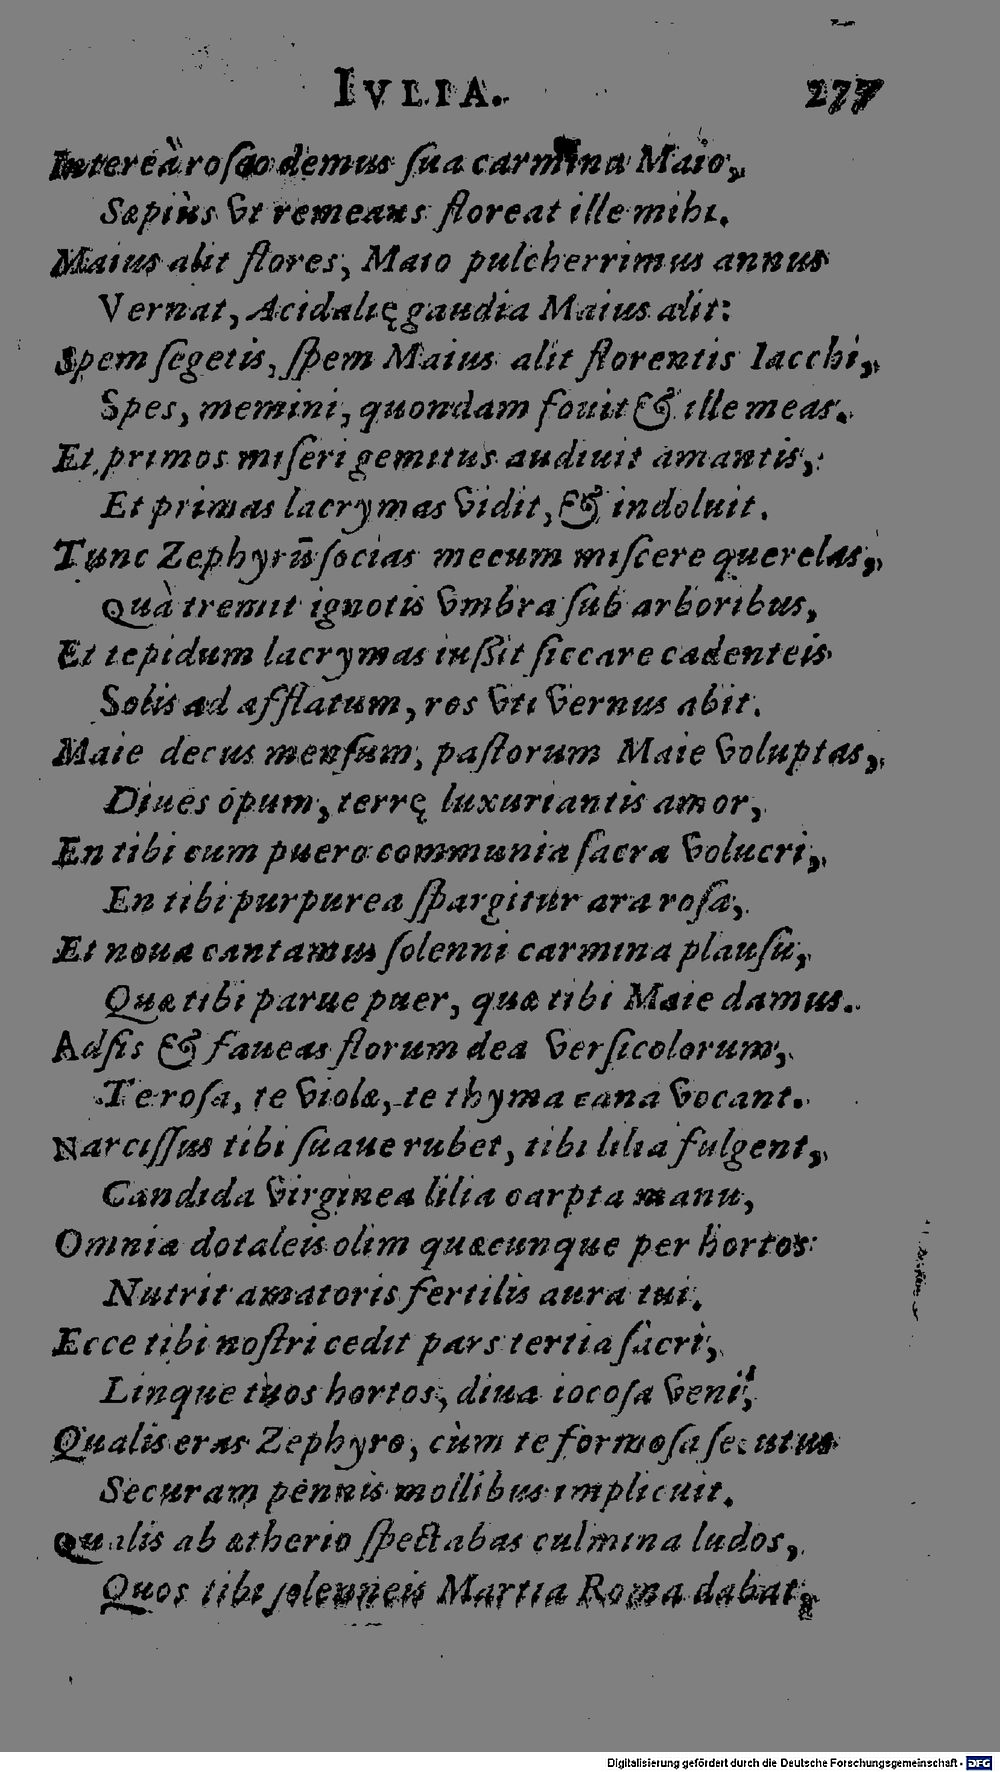 IVLIA. 277
Intereà roſeo demus ſua carmina Maio,
Sæpiùs vt remeans floreat ille mihi.
Maius alit flores, Maio pulcherrimus annus
Vernat, Acidalię gaudia Maius alit:
Spem ſegetis, ſpem Maius alit florentis Iacchi,
Spes, memini, quondam fouit & ille meas.
Et primos miſeri gemitus audiuit amantis,
Et primas lacrymas vidit, & indoluit.
Tunc Zephyrū ſocias mecum miſcere querelas,
Quà tremit ignotis vmbra ſub arboribus,
Et tepidum lacrymas iuſsit ſiccare cadenteis
Solis ad afflatum, ros vti vernus abit.
Maie decus menſum, paſtorum Maie voluptas,
Diues opum, terrę luxuriantis amor,
En tibi cum puero communia ſacra volucri,
En tibi purpurea ſpargitur ara roſa,
Et noua cantamus ſolenni carmina plauſu,
Quæ tibi parue puer, quæ tibi Maie damus.
Adſis & faueas florum dea verſicolorum,
Te roſa, te violæ, te thyma cana vocant.
Narciſſus tibi ſuaue rubet, tibi lilia fulgent,
Candida virginea lilia carpta manu,
Omnia dotaleis olim quæcunque per hortos
Nutrit amatoris fertilis aura tui.
Ecce tibi noſtri cedit pars tertia ſacri,
Linque tuos hortos, diua iocoſa veni,
Qualis eras Zephyro, cùm te formoſa ſecutus
Securam pennis mollibus implicuit.
Qualis ab ætherio ſpectabas culmina ludos,
Quos tibi ſolenneis Martia Roma dabat,
Digitalisierung gefördert durch die Deutsche Forschungsgemeinschaft - DFG